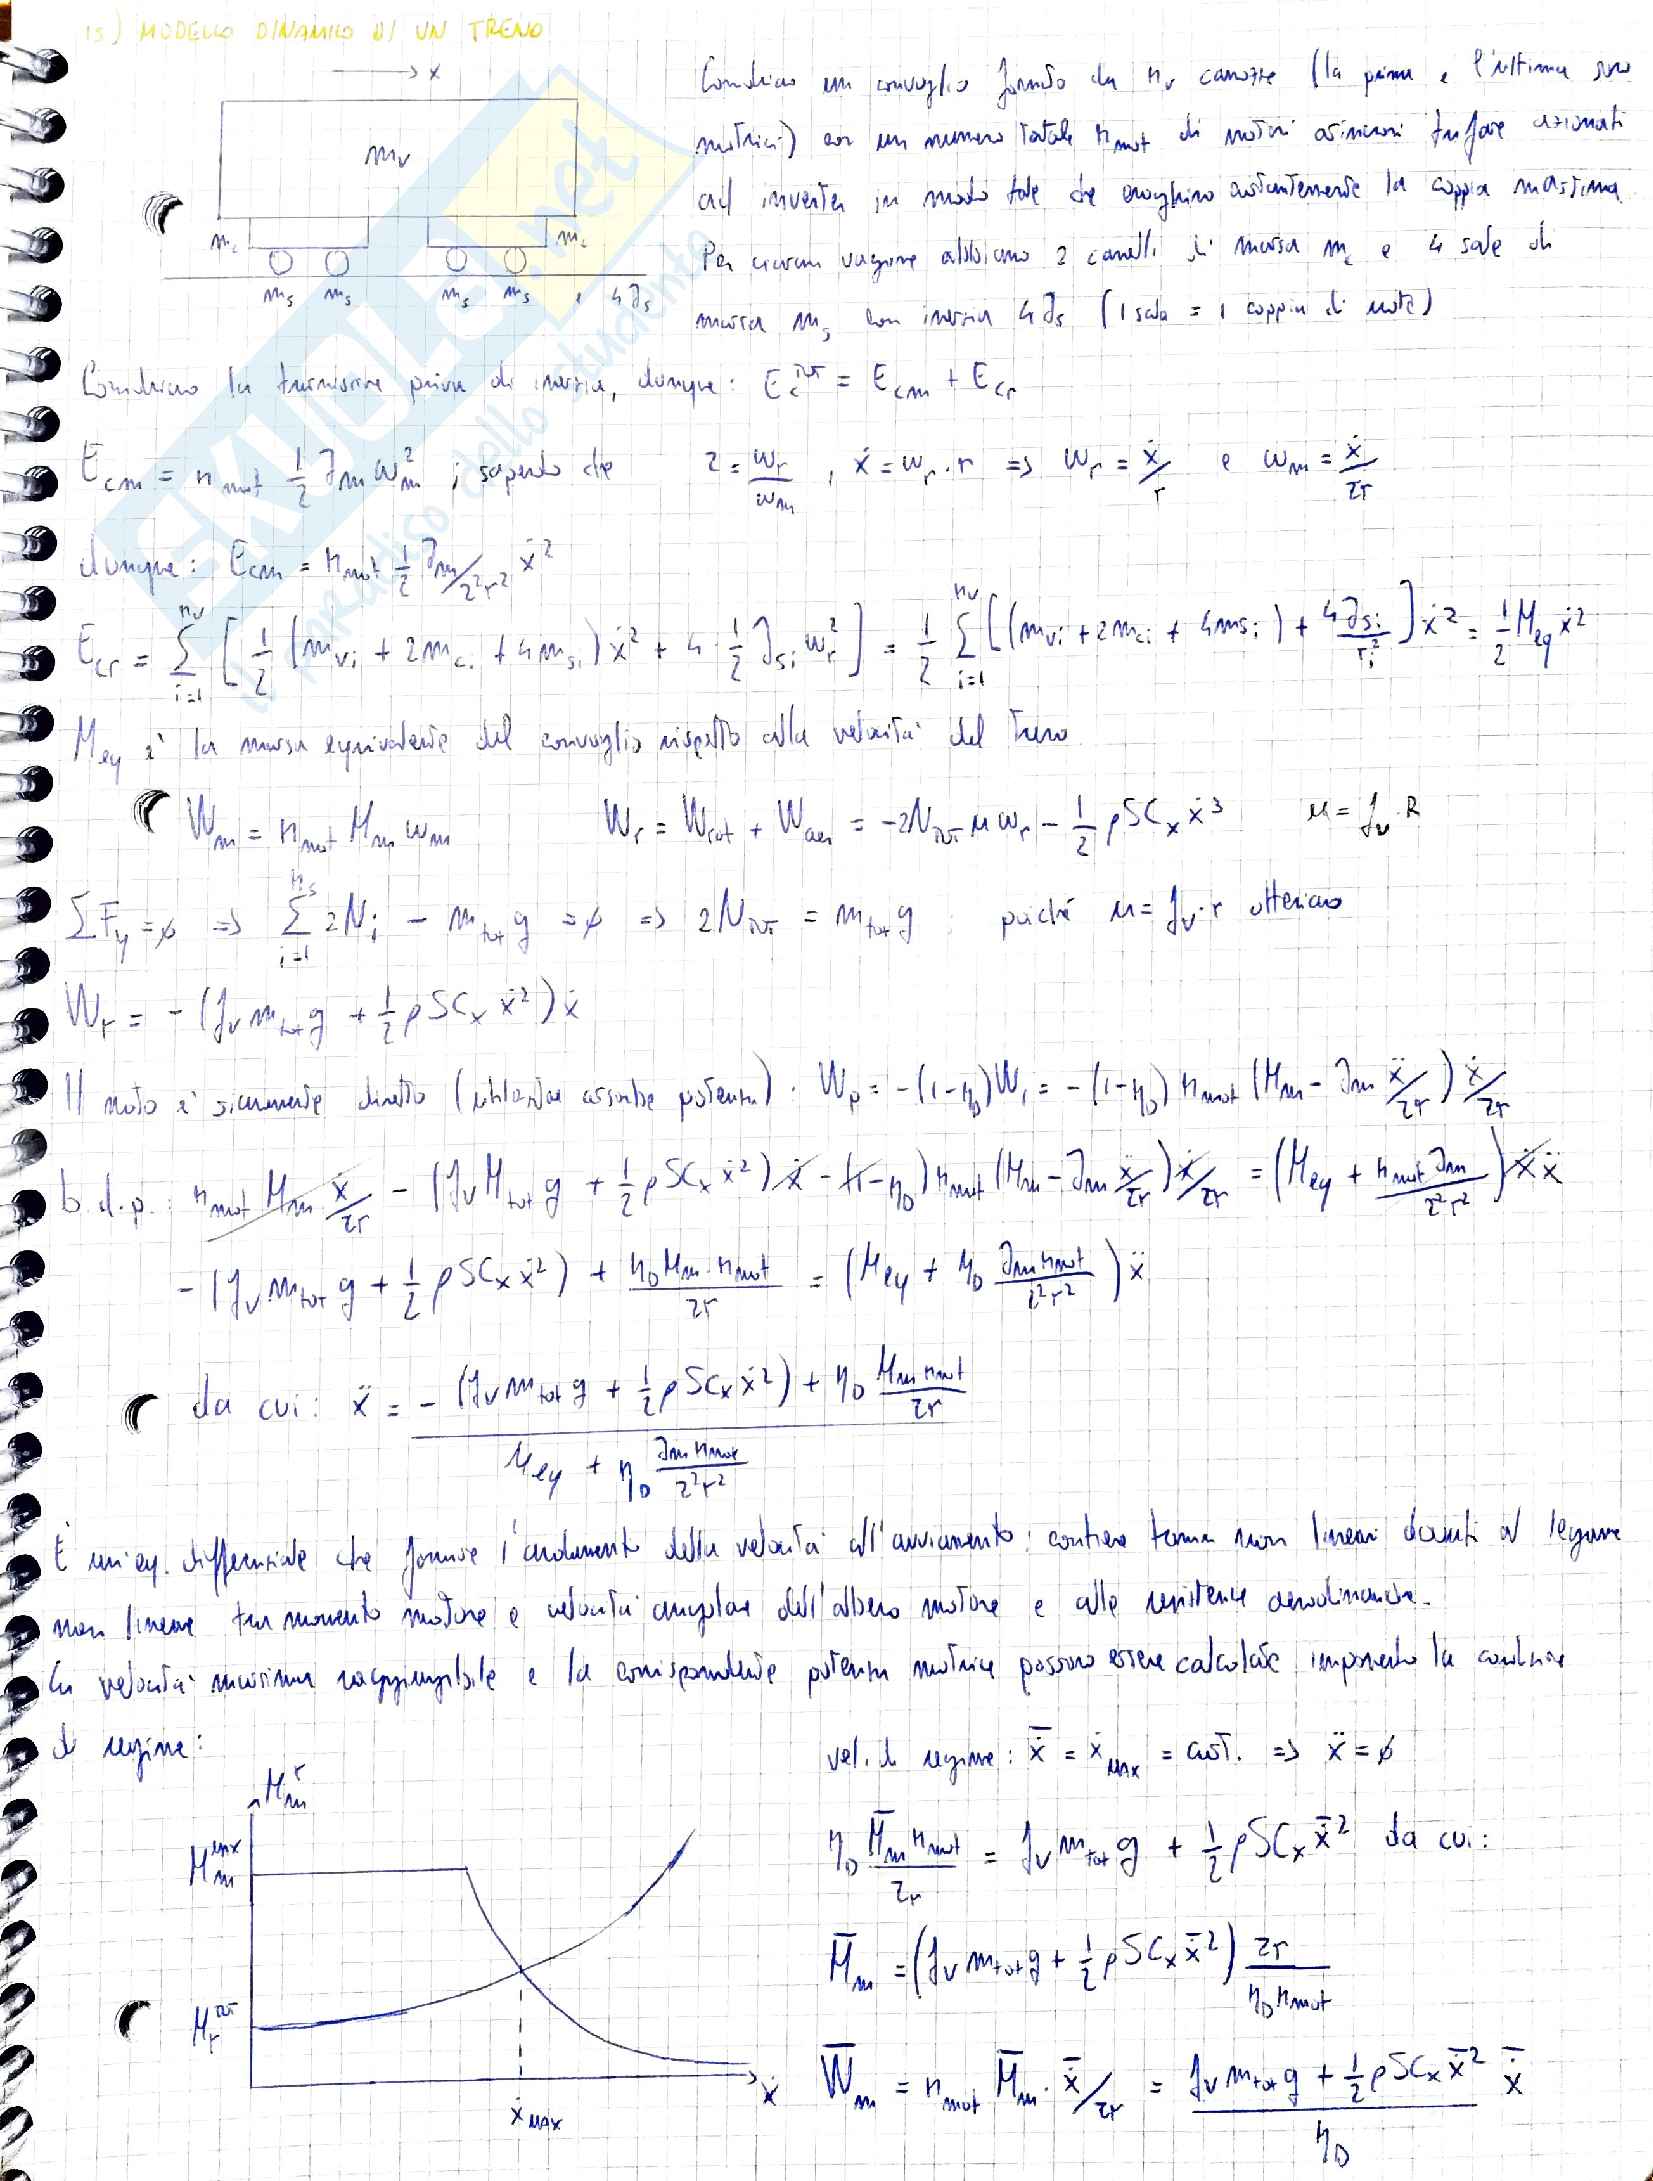 15) MODELLO DINAMICO DI UN TRENO
→ x
m_v
m_c m_c
m_s m_s m_s m_s e 4J_s
Consideriamo un convoglio formato da n_v carrozze (la prima e l'ultima sono
motrici) con un numero totale n_mot di motori asincroni trifase azionati
ad inverter in modo tale che eroghino costantemente la coppia massima.
Per ciascun vagone abbiamo 2 carrelli di massa m_c e 4 sale di
massa m_s con inerzia 4J_s (1 sala = 1 coppia di ruote)
Consideriamo la trasmissione priva di inerzia, dunque: E_c^TOT = E_cm + E_cr
E_cm = n_mot 1/2 J_m ω_m² ; sapendo che τ = ω_r/ω_m , ẋ = ω_r · r => ω_r = ẋ/r e ω_m = ẋ/τr
dunque: E_cm = n_mot 1/2 J_m/τ²r² ẋ²
E_cr = Σ_{i=1}^{n_v} [1/2 (m_vi + 2m_ci + 4m_si) ẋ² + 4 · 1/2 J_si ω_r²] = 1/2 Σ_{i=1}^{n_v} [(m_vi + 2m_ci + 4m_si) + 4J_si/r_i²] ẋ² = 1/2 M_eq ẋ²
M_eq è la massa equivalente del convoglio rispetto alla velocità del treno.
W_m = n_mot M_m ω_m W_r = W_rot + W_aer = -2N_TOT u ω_r - 1/2 ρSC_x ẋ³ u = f_v · R
ΣF_y = ø => Σ_{i=1}^{n_s} 2N_i - m_tot g = ø => 2N_TOT = m_tot g poiché u = f_v · r otteniamo
W_r = - (f_v m_tot g + 1/2 ρSC_x ẋ²) ẋ
Il moto è sicuramente diretto (utilizzatore assorbe potenza). W_p = -(1-η_D)W_1 = -(1-η_D) n_mot (M_m - J_m ẍ/τr) ẋ/τr
b.d.p.: n_mot M_m ẋ/τr - (f_v M_tot g + 1/2 ρSC_x ẋ²) ẋ - (1-η_D) n_mot (M_m - J_m ẍ/τr) ẋ/τr = (M_eq + n_mot J_m/τ²r²) ẋ ẍ
- (f_v m_tot g + 1/2 ρSC_x ẋ²) + η_D M_m · n_mot/τr = (M_eq + η_D J_m n_mot/τ²r²) ẍ
da cui: ẍ = - (f_v m_tot g + 1/2 ρSC_x ẋ²) + η_D M_m n_mot/τr
M_eq + η_D J_m n_mot/τ²r²
È un'eq. differenziale che fornisce l'andamento della velocità all'avviamento: contiene termini non lineari dovuti al legame
non lineare tra momento motore e velocità angolare dell'albero motore e alle resistenze aerodinamiche.
La velocità massima raggiungibile e la corrispondente potenza motrice possono essere calcolate imponendo la condizione
di regime:
vel. di regime: x̄̇ = ẋ_MAX = cost. => ẍ = ø
η_D M̄_m n_mot/τr = f_v m_tot g + 1/2 ρSC_x x̄̇² da cui:
M̄_m = (f_v m_tot g + 1/2 ρSC_x x̄̇²) τr/η_D n_mot
W̄_m = n_mot M̄_m · x̄̇/τr = f_v m_tot g + 1/2 ρSC_x x̄̇²/η_D x̄̇
M_m^r
M_m^max
M_r^TOT
ẋ_MAX
ẋ
SKUOLA.net
il paradiso dello studente